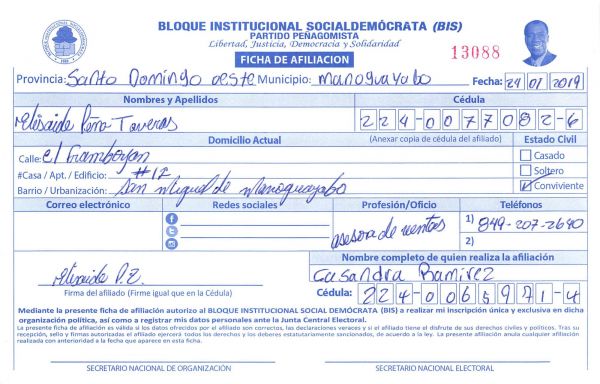 BLOQUE INSTITUCIONAL SOCIALDEMÓCRATA (BIS)
PARTIDO PEÑAGOMISTA
Libertad, Justicia, Democracia y Solidaridad
FICHA DE AFILIACION
13088
Provincia: Santo Domingo oeste Municipio: manoguayabo Fecha: 29 01 2019
Nombres y Apellidos Cédula
Elisaide Peña Taveras 224-0077082-6
Domicilio Actual (Anexar copia de cédula del afiliado) Estado Civil
Calle: el framboyan Casado
#Casa / Apt. / Edificio: #12 Soltero
Barrio / Urbanización: San Miguel de Manoguayabo Conviviente
Correo electrónico Redes sociales Profesión/Oficio Teléfonos
asesora de ventas 1) 849-207-2640
2)
Nombre completo de quien realiza la afiliación
Elisaide P. T. Casandra Ramirez
Firma del afiliado (Firme igual que en la Cédula) Cédula: 224-0065971-4
Mediante la presente ficha de afiliación autorizo al BLOQUE INSTITUCIONAL SOCIAL DEMÓCRATA (BIS) a realizar mi inscripción única y exclusiva en dicha
organización política, así como a registrar mis datos personales ante la Junta Central Electoral.
La presente ficha de afiliación es válida si los datos ofrecidos por el afiliado son correctos, las declaraciones veraces y si el afiliado tiene el disfrute de sus derechos civiles y políticos. Tras su
recepción, sello y firmas autorizadas el afiliado ejercerá todos los derechos y los deberes estatutariamente sancionados, de acuerdo a la ley. La presente afiliación anula cualquier afiliación
realizada con anterioridad a la fecha que aparece en esta ficha.
SECRETARIO NACIONAL DE ORGANIZACIÓN SECRETARIO NACIONAL ELECTORAL